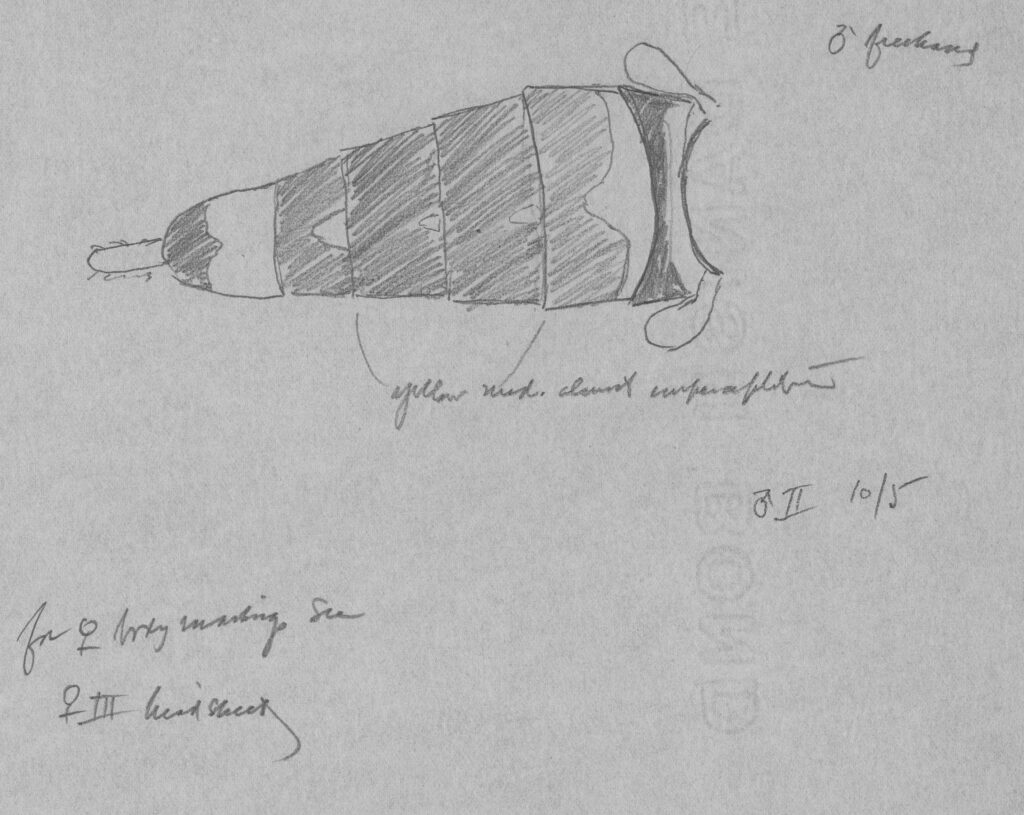 ♂ freehand
yellow med. almost imperceptible
♂ II 10/5
for ♀ body markings see
♀ III head sheet